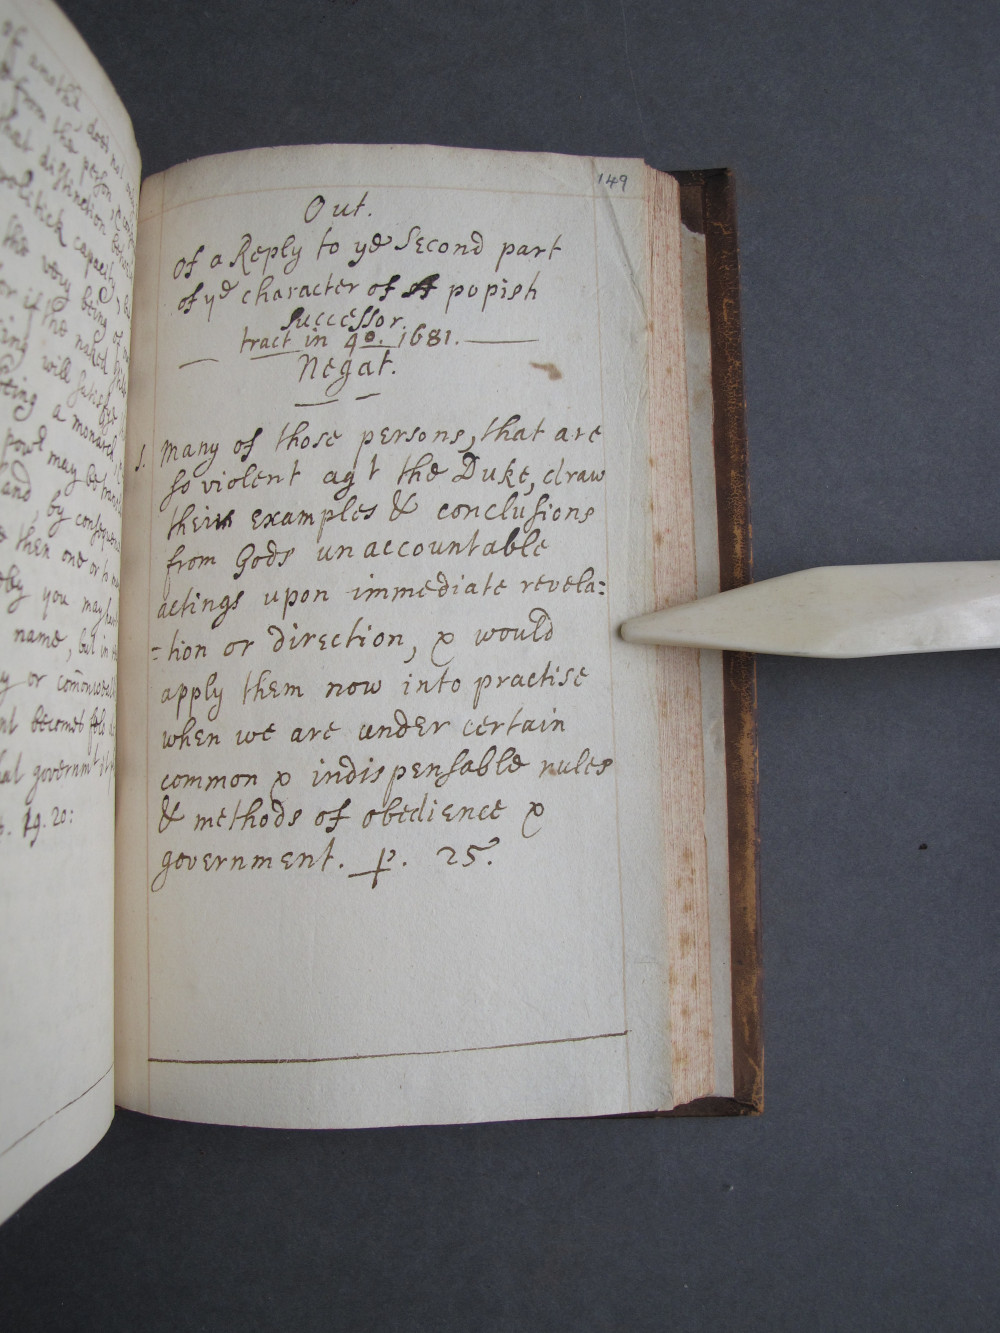 of anothe does not
from the person,
that distinction
politick capacity,
the very being of
or if the naked
will satisfye
a monarch,
powr may be
and by consequen
then one or
you may
name, but in
y or comonwealth
becomes felo
hat governmt
p. 19. 20:
149
Out.
of a Reply to ye Second part
of ye character of A popish
Successor.
tract in 4o. 1681.
Negat.
1. Many of those persons, that are
so violent agt the Duke, draw
their examples & conclusions
from Gods unaccountable
actings upon immediate revela=
=tion or direction, & would
apply them now into practise
when we are under certain
common & indispensable rules
& methods of obedience &
government. p. 25.